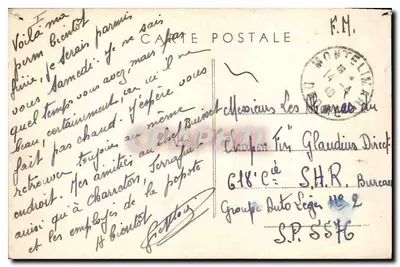 F.M.
CARTE POSTALE
Voilà ma
perm bientôt
finie, je serais parmis
vous Samedi. Je ne sais
quel temps vous avez, mais pas
beau, certainement, car ici il ne
fait pas chaud. J'espère vous
retrouver toujours au même
endroit. Mes amitiés au chef Buisset
ainsi qu'à Charroton,
et les employés de la popote
A bientôt
MONTELIMAR
Messieurs Les du
Chapon Fin Glaudius Direct
618e Cie S.H.R. Bureau
Groupe Auto Léger N° 2
S.P. 5576